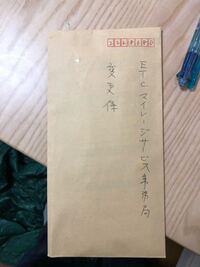 2368680
ETCマイレージサービス事務局
変更件